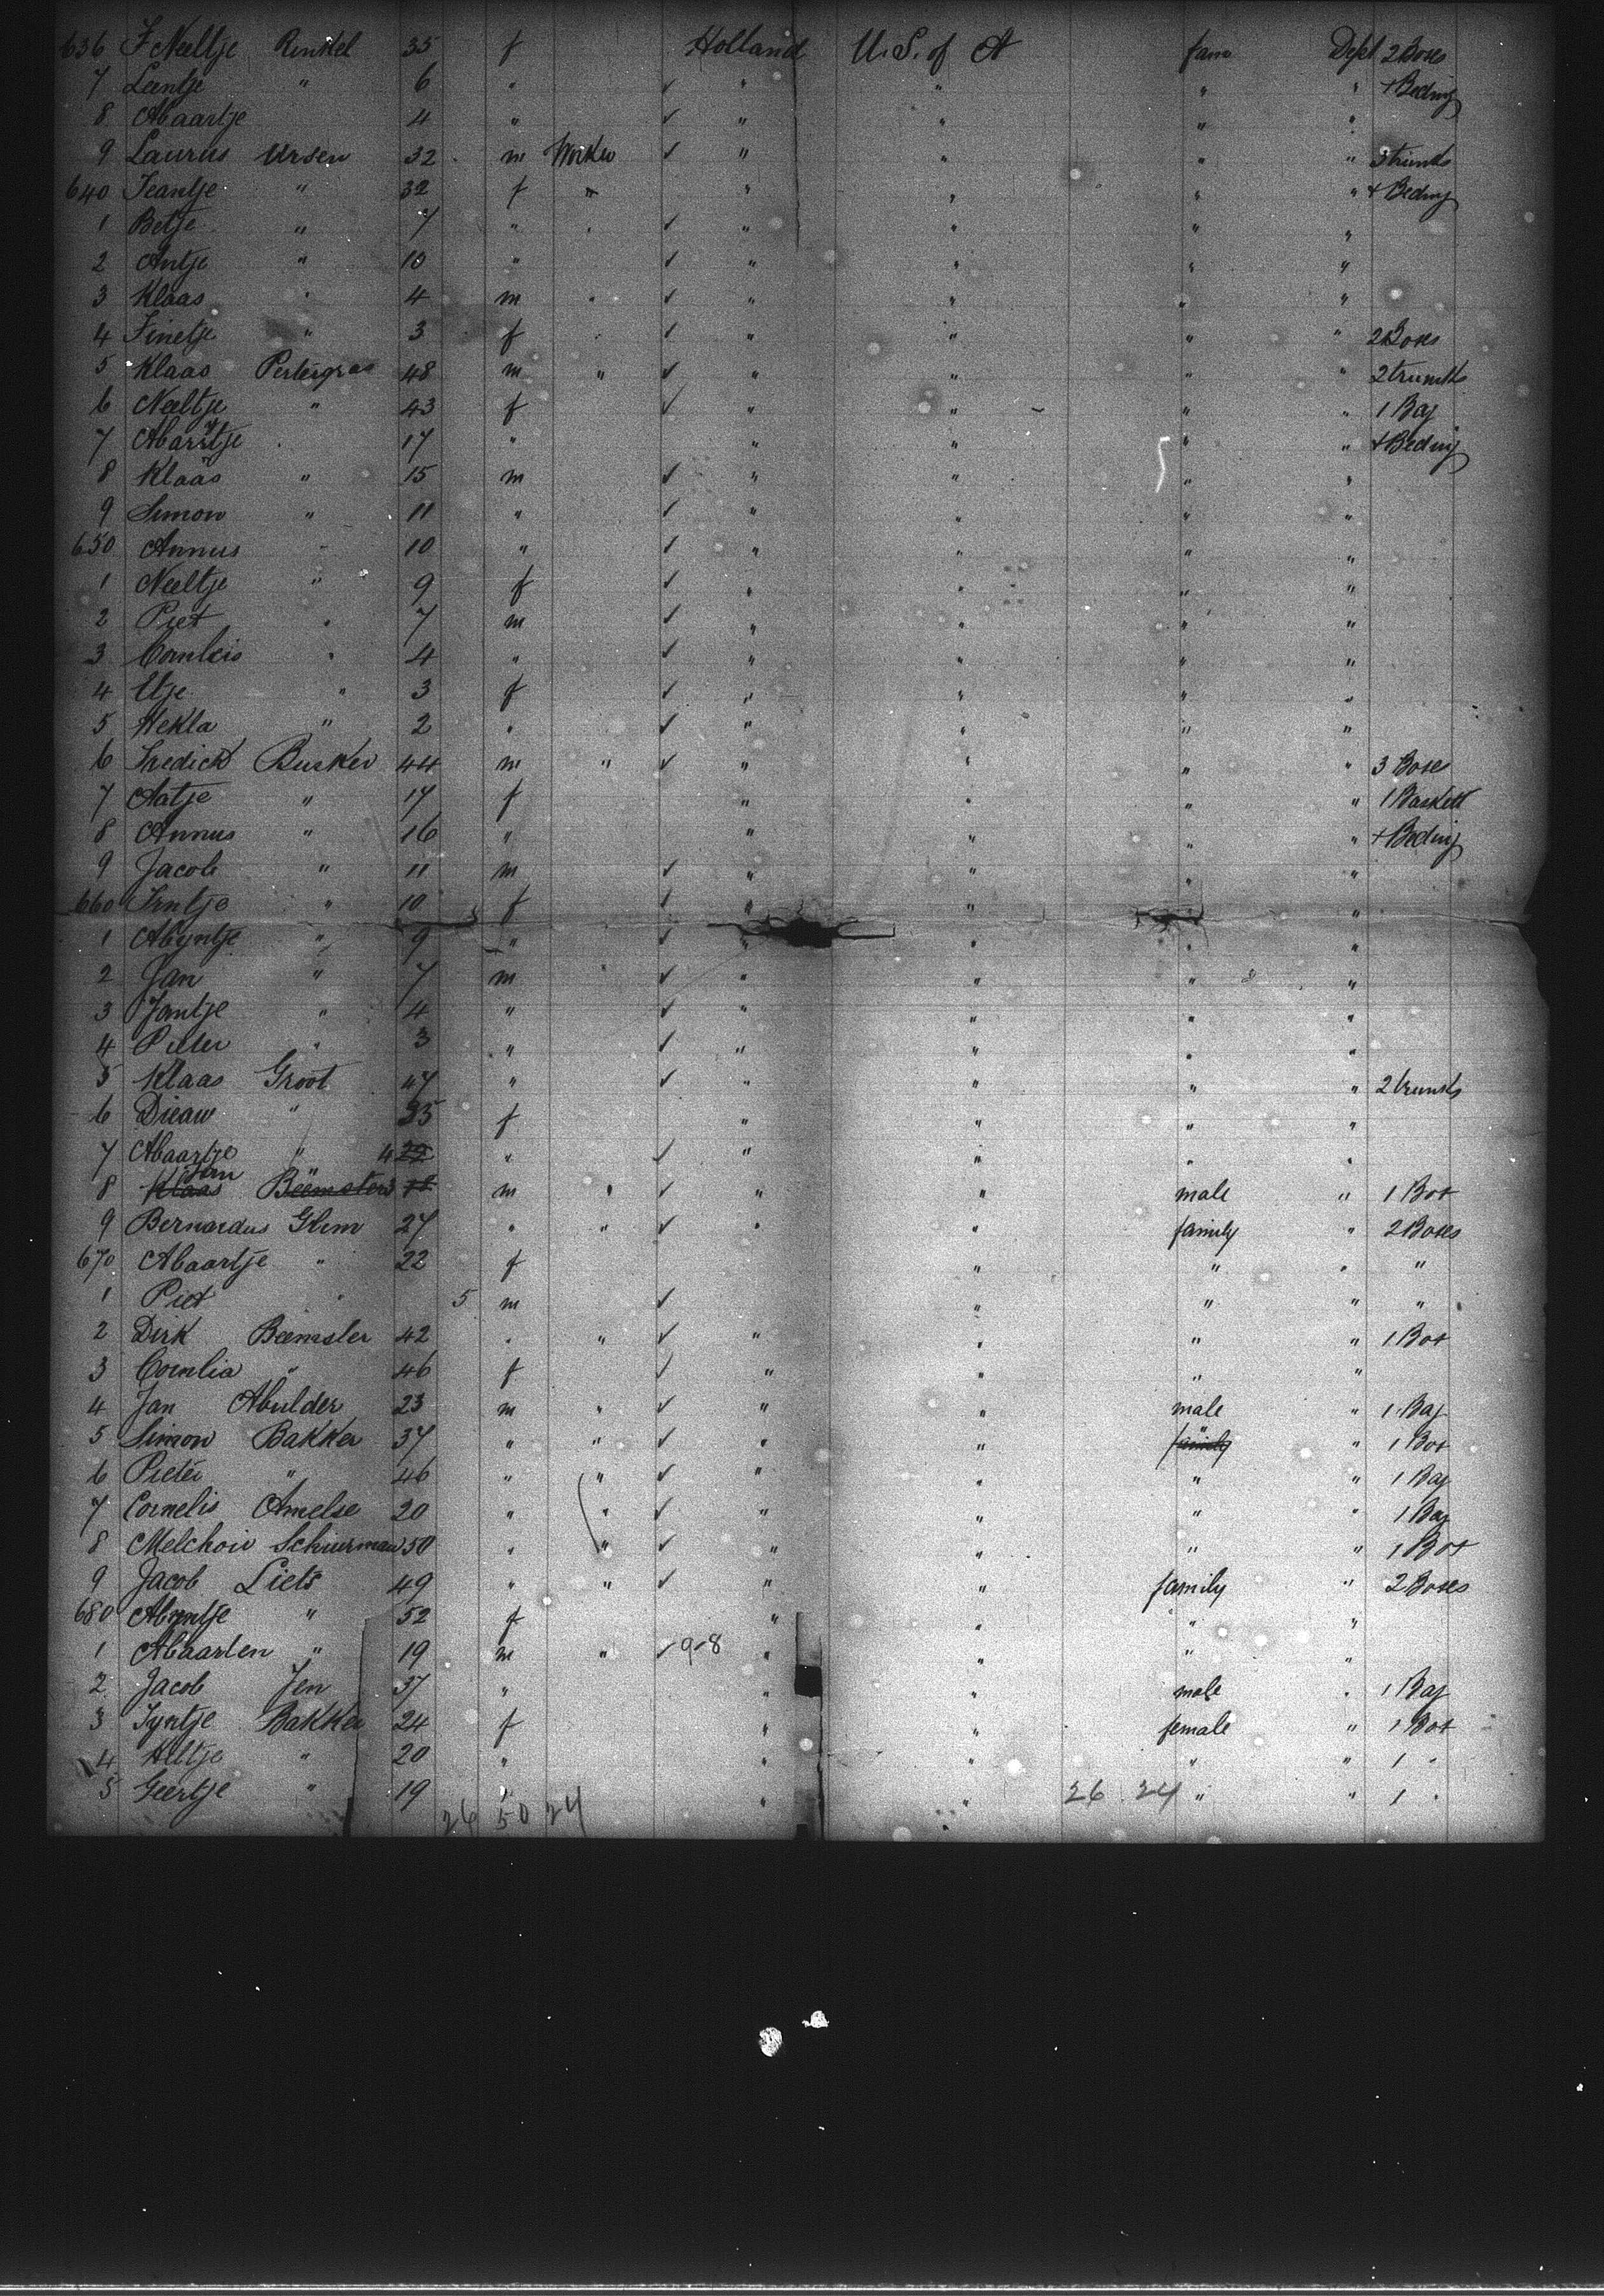 636 F Neeltje Renkel 35 f Holland U. S. of A fam Dept 2 Boxes
7 Leentje " 6 " ✓ " " " " + Beding
8 Maartje 4 " ✓ " " " "
9 Laurus Ursen 32 m Worker ✓ " " " " 3 trunks
640 Jeantje " 32 f " " " " " + Beding
1 Betje " 7 " " ✓ " " " "
2 Antje " 10 " ✓ " " " "
3 Klaas " 4 m " ✓ " " " "
4 Finetje " 3 f ✓ " " " " 2 Boxes
5 Klaas Petergras 48 m " ✓ " " " " 2 trunks
6 Neeltje " 43 f ✓ " " " " 1 Bag
7 Maartje 17 " " " " " + Beding
8 Klaas " 15 m ✓ " " " "
9 Simon " 11 " ✓ " " " "
650 Annus " 10 " ✓ " " " "
1 Neeltje " 9 f ✓ " " " "
2 Piet " 7 m ✓ " " " "
3 Cornleis " 4 " ✓ " " " "
4 Etje " 3 f ✓ " " " "
5 Hekla " 2 " ✓ " " " "
6 Fredick Busker 44 m " ✓ " " " " 3 Boxes
7 Aatje " 17 f " " " " 1 Baskett
8 Annus " 16 " " " " " + Beding
9 Jacob " 11 m ✓ " " " "
660 Trntje " 10 f ✓ " " "
1 Myntje " 9 " ✓ " " " "
2 Jan " 7 m " ✓ " " " "
3 Jantje " 4 " ✓ " " " "
4 Pieter " 3 " ✓ " " " "
5 Klaas Groot 47 " ✓ " " " " 2 trunks
6 Dieaw " 35 f " " " "
7 Maartje " 4 22 " ✓ " " " "
8 Klaas Jan Beemster 3 m " ✓ " " male " 1 Box
9 Bernardus Glem 27 " " ✓ " " family " 2 Boxes
670 Maartje " 22 f " " " "
1 Piet " 5 m ✓ " " " "
2 Dirk Beemsler 42 " " ✓ " " " " 1 Box
3 Cornlia " 46 f ✓ " " " "
4 Jan Mulder 23 m " ✓ " " male " 1 Bag
5 Simon Bakker 37 " " ✓ " " family " 1 Box
6 Pieter " 46 " " ✓ " " " " 1 Bag
7 Cornelis Amelse 20 " " ✓ " " " " 1 Bag
8 Melchoir Schuurman 50 " " ✓ " " " " 1 Box
9 Jacob Liets 49 " " ✓ " " family " 2 Boxes
680 Myntje " 52 f " " " "
1 Maarten " 19 m " ✓ 9-8 " " " "
2 Jacob Jen 37 " " " male " 1 Bag
3 Tyntje Bakker 24 f " " female " 1 Box
4 Altje " 20 " " " " " 1 "
5 Geertje " 19 " " " " " 1 "
26 50 24 26 24